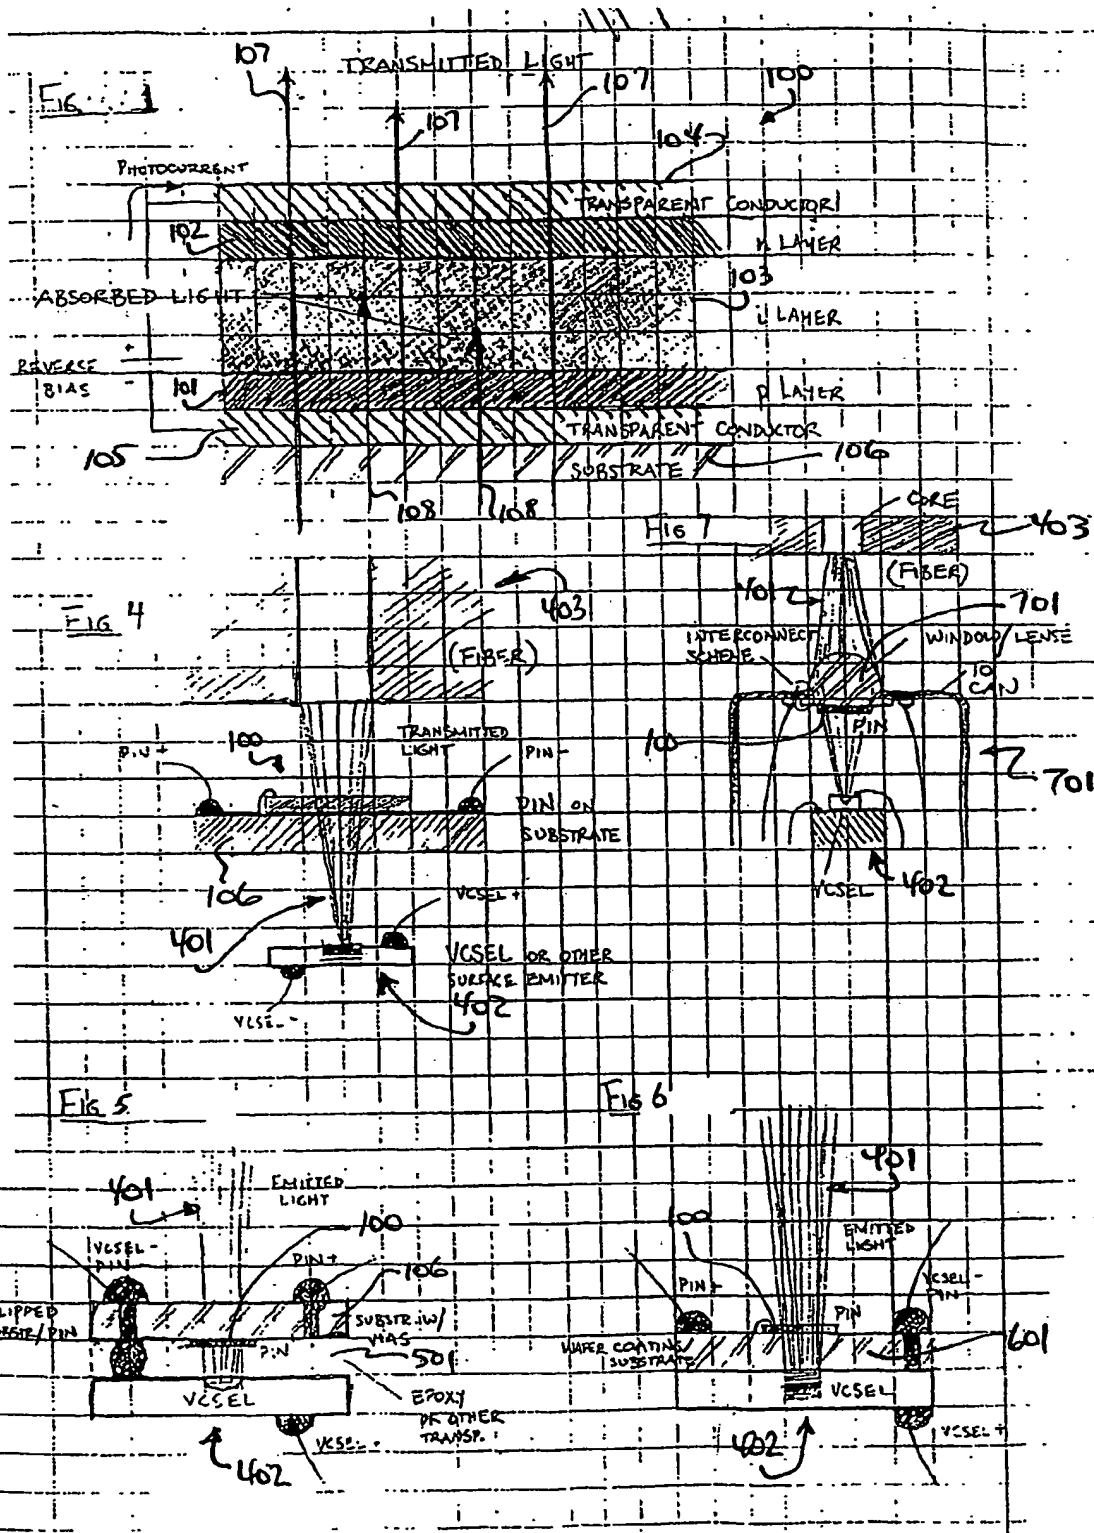 107
TRANSMITTED LIGHT
107
100
FIG 1
107
104
PHOTOCURRENT
TRANSPARENT CONDUCTOR
102
n LAYER
103
ABSORBED LIGHT
i LAYER
+
REVERSE
BIAS
-
101
p LAYER
TRANSPARENT CONDUCTOR
105
106
SUBSTRATE
108
108
FIG 7
CORE
403
(FIBER)
401
701
INTERCONNECT
SCHEME
WINDOW/LENSE
10
CAN
PIN
100
701
VCSEL
402
FIG 4
403
(FIBER)
TRANSMITTED
LIGHT
PIN+
100
PIN-
PIN ON
SUBSTRATE
106
VCSEL+
401
VCSEL OR OTHER
SURFACE EMITTER
402
VCSEL-
FIG 5
401
EMITTED
LIGHT
100
VCSEL-
PIN-
PIN+
106
LIPPED
BSTR/PIN
SUBSTR. W/
VIAS
PIN
501
VCSEL
EPOXY
OR OTHER
TRANSP.
VCSEL+
402
FIG 6
401
100
EMITTED
LIGHT
PIN+
VCSEL-
PIN
PIN
WAFER COATING/
SUBSTRATE
601
VCSEL
402
VCSEL+